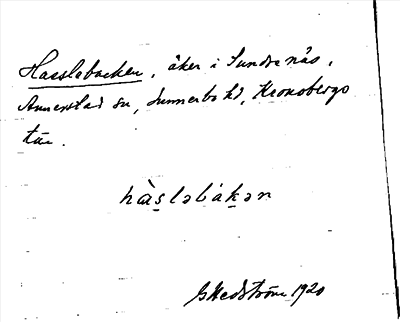 Hasslebacken, åker i Sundranäs,
Annerstad sn, Sunnerbo hd, Kronobergs
län.
hàslebákən
G Hedström 1920